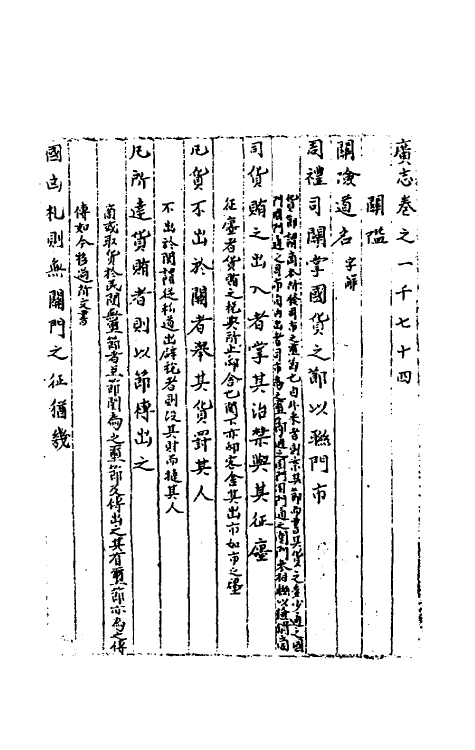 廣志卷之一千七十四
關隘
關隘道名 字解
周禮司關掌國貨之節以聯門市
貨節謂商本所發司市之璽節也自外來者則案其節而書其貨之多少通之國
門國門通之司市自內出者司市為之璽節通之國門國門通之關門參相聯以檢猾商
司貨賄之出入者掌其治禁與其征廛
征廛者貨賄之稅與所止邸舍也關下亦邸客舍其出布如市之廛
凡貨不出於關者舉其貨罰其人
不出於關謂從私道出辟稅者則沒其財而撻其人
凡所達貨賄者則以節傳出之
商或取貨於民間無璽節者至節關為之璽節及傳出之其有璽節亦為之傳
傳如今移過所文書
國凶札則無關門之征猶幾